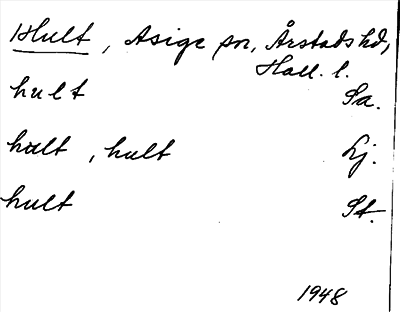 Hult, Asige sn, Årstads hd,
Hall. l.
hult Sa.
hult, hult Lj.
hult St.
1948